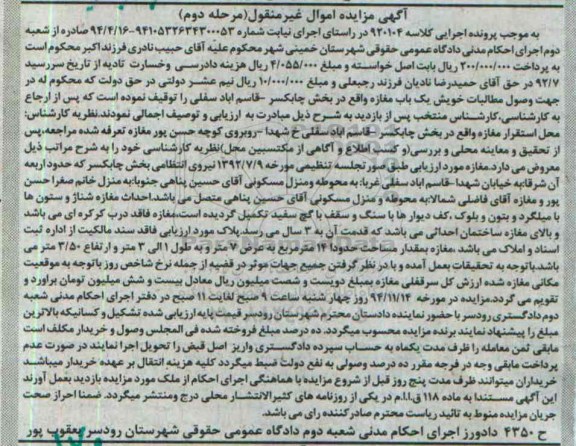 آگهی مزایده اموال غیرمنقول(مرحله دوم)
به موجب پرونده اجرایی کلاسه ۹۲۰۱۰۴ در راستای اجرای نیابت شماره ۹۴۱۰۵۳۲۶۳۴۳۰۰۰۵۳-۹۴/۴/۱۶ صادره از شعبه
دوم اجرای احکام مدنی دادگاه عمومی حقوقی شهرستان خمینی شهر محکوم علیه آقای حبیب نادری فرزند اکبر محکوم است
به پرداخت ۲۰۰/۰۰۰/۰۰۰ ریال بابت اصل خواسته و مبلغ ۴/۰۵۵/۰۰۰ ریال هزینه دادرسی وخسارت تادیه از تاریخ سررسید
۹۲/۷ در حق آقای حمیدرضا نادیان فرزند رجبعلی و مبلغ ۱۰/۰۰۰/۰۰۰ ریال نیم عشر دولتی در حق دولت که محکوم له در
جهت وصول مطالبات خویش یک باب مغازه واقع در بخش چابکسر -قاسم اباد سفلی را توقیف نموده است که پس از ارجاع
به کارشناسی،کارشناس منتخب پس از بازدید به شرح ذیل مبادرت به ارزیابی و توصیف اجمالی نمودند.نظریه کارشناس:
محل استقرار مغازه واقع در بخش چابکسر -قاسم اباد سفلی خ شهدا -روبروی کوچه حسن پور مغازه تعرفه شده مراجعه،پس
از تحقیق و معاینه محلی و بررسی(و کسب اطلاع و آگاهی از مکتسبین محل)نظریه کارشناسی خود را به شرح مراتب ذیل
معروض می دارد.مغازه مورد ارزیابی طبق صور تجلسه تنظیمی مورخه ۱۳۹۲/۷/۹ نیروی انتظامی بخش چابکسر که حدود اربعه
آن شرقا:به خیابان شهدا -قاسم اباد سفلی غربا: به محوطه ومنزل مسکونی آقای حسین پناهی جنوبا:به منزل خانم صغرا حسن
پور و مغازه آقای فاضلی شمالا:به محوطه و منزل مسکونی آقای حسین پناهی متصل می باشد.احداث مغازه شناژ و ستون ها
با میلگرد و بتون و بلوک ،کف دیوار ها با سنگ و سقف با گچ سفید تکمیل گردیده است،مغازه فاقد درب کرکره ای می باشد
و بالای مغازه ساختمان احداثی می باشد که قدمت آن به ۳ سال می رسد.پلاک مورد ارزیابی فاقد سند مالکیت از اداره ثبت
اسناد و املاک می باشد ،مغازه بمقدار مساحت حدودا ۱۴ مترمربع به عرض ۷ متر وبه طول ۱ الی ۳ متر و ارتفاع ۳/۵۰ متر می
باشد.باتوجه به تحقیقات بعمل آمده و با در نظر گرفتن جمیع جهات موثر در قضیه از جمله نرخ شاخص روز باتوجه به موقعیت
مکانی مغازه شده ارزش کل سرقفلی مغازه بمبلغ دویست و شصت میلیون ریال معادل بیست و شش میلیون تومان براورد و
تقویم می گردد.مزایده در مورخه ۹۴/۱۱/۱۴ روز چهار شنبه ساعت ۹ صبح لغایت ۱۱ صبح در دفتر اجرای احکام مدنی شعبه
دوم دادگستری رودسر با حضور نماینده دادستان محترم شهرستان رودسر قیمت پایه ارزیابی شده تشکیل و کسانیکه بالاترین
مبلغ را پیشنهاد نمایند برنده مزایده محسوب میگردد. ده درصد مبلغ فروخته شده فی المجلس وصول و خریدار مکلف است
مابقی ثمن معامله را ظرف مدت یکماه به حساب سپرده دادگستری واریز اصل قبض را تحویل اجرا نمایند در صورت عدم
پرداخت مابقی وجه در فرجه مقرر ده درصد وصولی به نفع دولت ضبط میگردد کلیه هزینه انتقال بر عهده خریدار میباشد
خریداران میتوانند ظرف مدت پنج روز قبل از شروع مزایده با هماهنگی اجرای احکام از ملک مورد مزایده بازدید بعمل آورند
این آگهی مستندا به ماده ۱۱۸ ق.ا.ا.م در یکی از روزنامه های کثیرالانتشار محلی درج ومنتشر میگردد. ضمنا احراز صحت
جریان مزایده منوط به تائید ریاست محترم صادرکننده رای می باشد.
ح ۴۳۵۰ دادورز اجرای احکام مدنی شعبه دوم دادگاه عمومی حقوقی شهرستان رودسر یعقوب پور